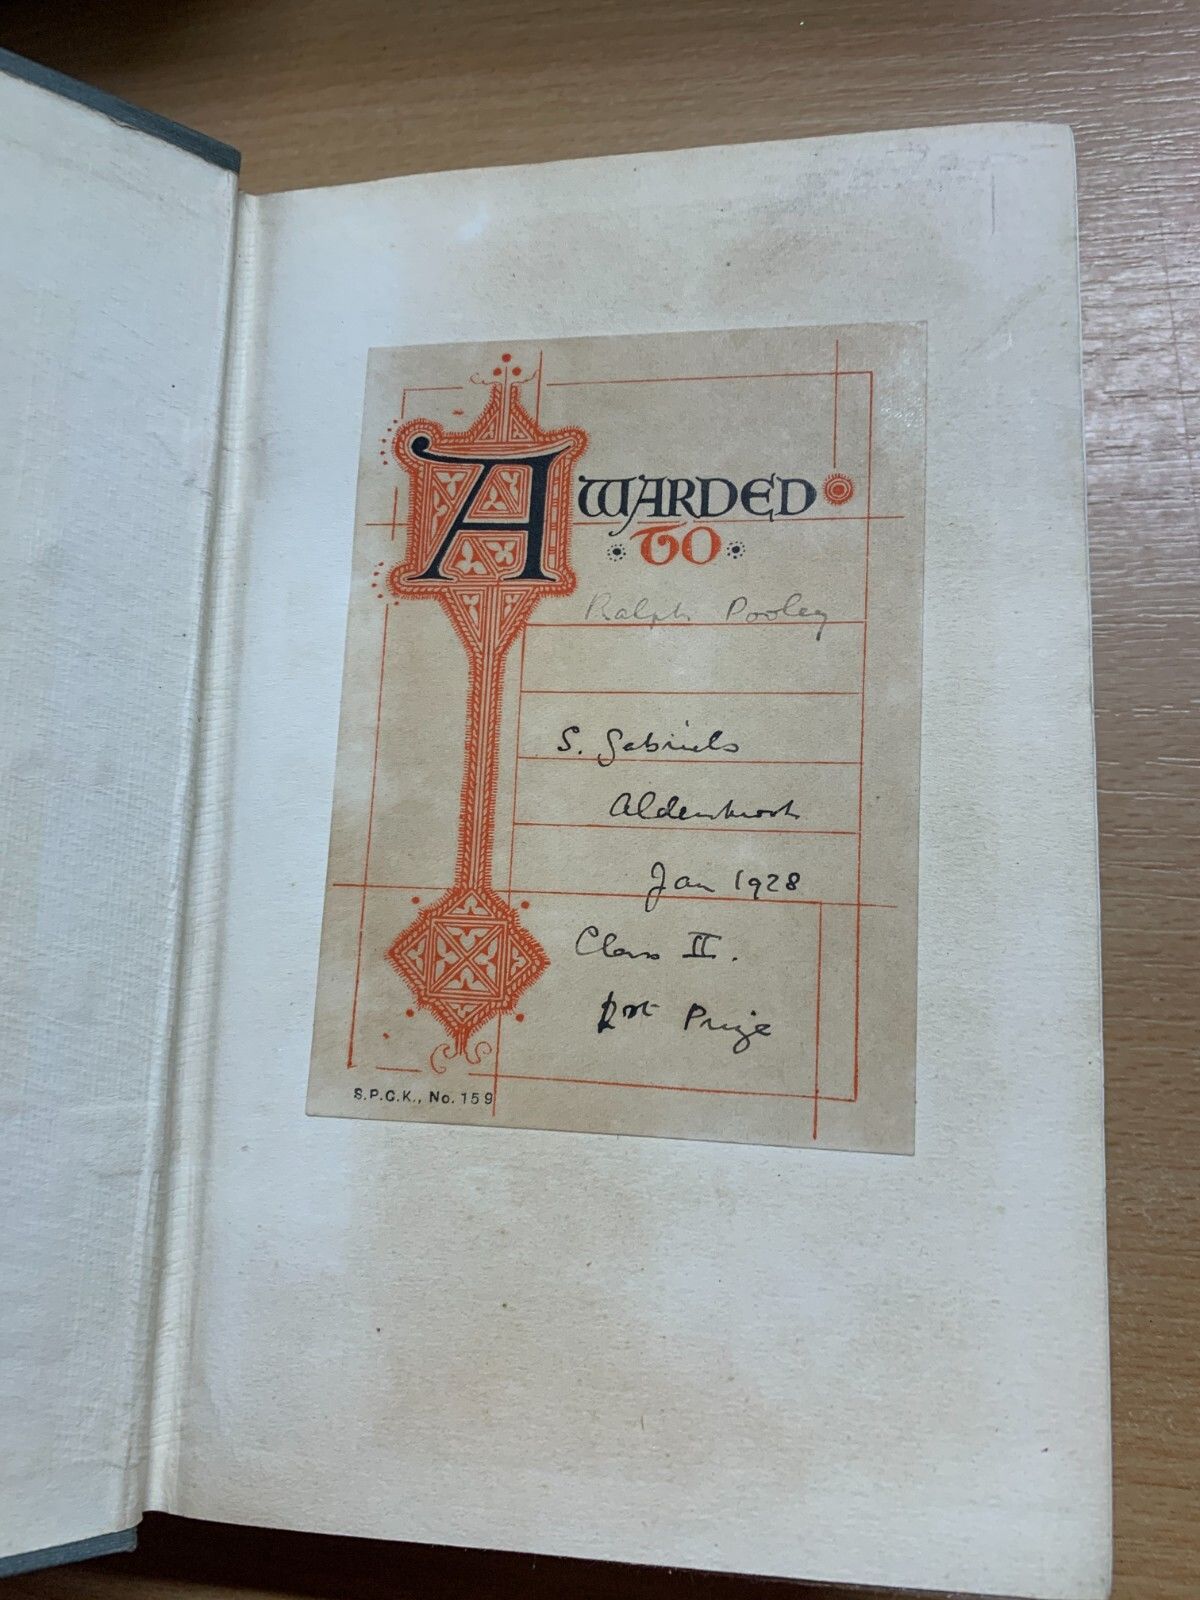 AWARDED
TO
Ralph Pooley
S. Gabriels
Aldersbrook
Jan 1928
Class II.
Prize
S.P.C.K., No. 159